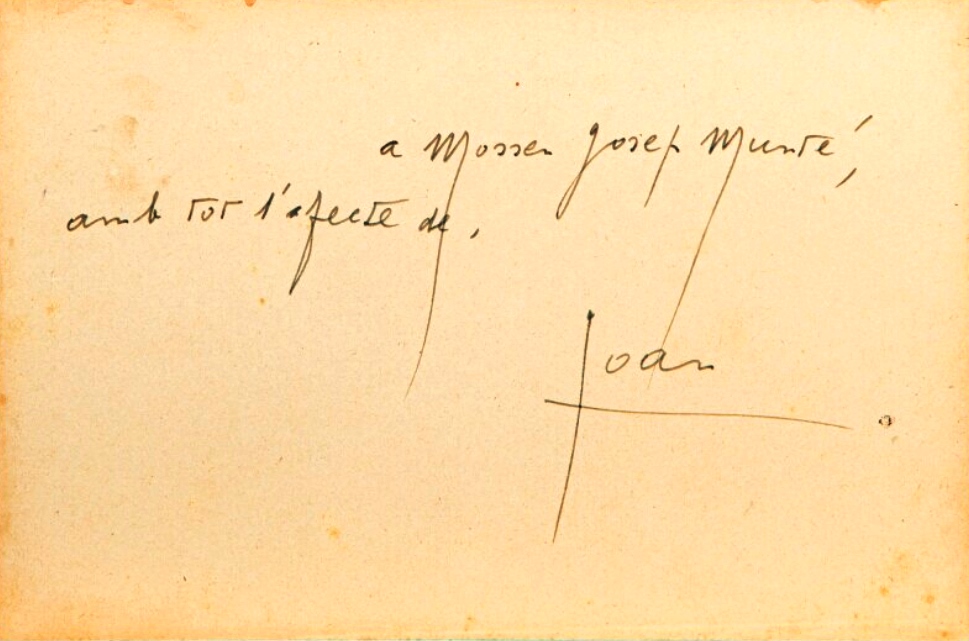 a Mossen Josep Munté,
amb tot l'afecte de,
Joan